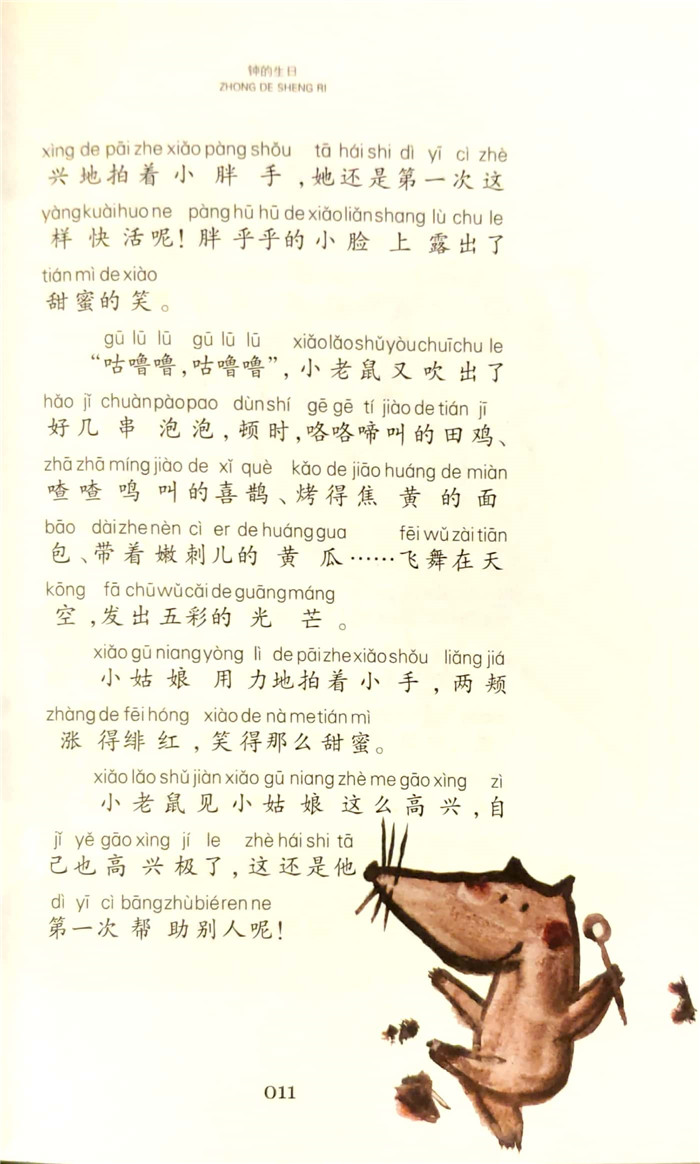 钟的生日
ZHONG DE SHENG RI
xìng de pāi zhe xiǎo pàng shǒu tā hái shi dì yī cì zhè
兴地拍着小胖手,她还是第一次这
yàng kuài huo ne pàng hū hū de xiǎo liǎn shang lù chu le
样快活呢!胖乎乎的小脸上露出了
tián mì de xiào
甜蜜的笑。
gū lū lū gū lū lū xiǎo lǎo shǔ yòu chuī chu le
“咕噜噜,咕噜噜”,小老鼠又吹出了
hǎo jǐ chuàn pào pao dùn shí gē gē tí jiào de tián jī
好几串泡泡,顿时,咯咯啼叫的田鸡、
zhā zhā míng jiào de xǐ què kǎo de jiāo huáng de miàn
喳喳鸣叫的喜鹊、烤得焦黄的面
bāo dài zhe nèn cì er de huáng gua fēi wǔ zài tiān
包、带着嫩刺儿的黄瓜……飞舞在天
kōng fā chū wù cǎi de guāng máng
空,发出五彩的光芒。
xiǎo gū niang yòng lì de pāi zhe xiǎo shǒu liǎng jiá
小姑娘用力地拍着小手,两颊
zhàng de fēi hóng xiào de nà me tián mì
涨得绯红,笑得那么甜蜜。
xiǎo lǎo shǔ jiàn xiǎo gū niang zhè me gāo xìng zì
小老鼠见小姑娘这么高兴,自
jǐ yě gāo xìng jí le zhè hái shi tā
己也高兴极了,这还是他
dì yī cì bāng zhù bié ren ne
第一次帮助别人呢!
011